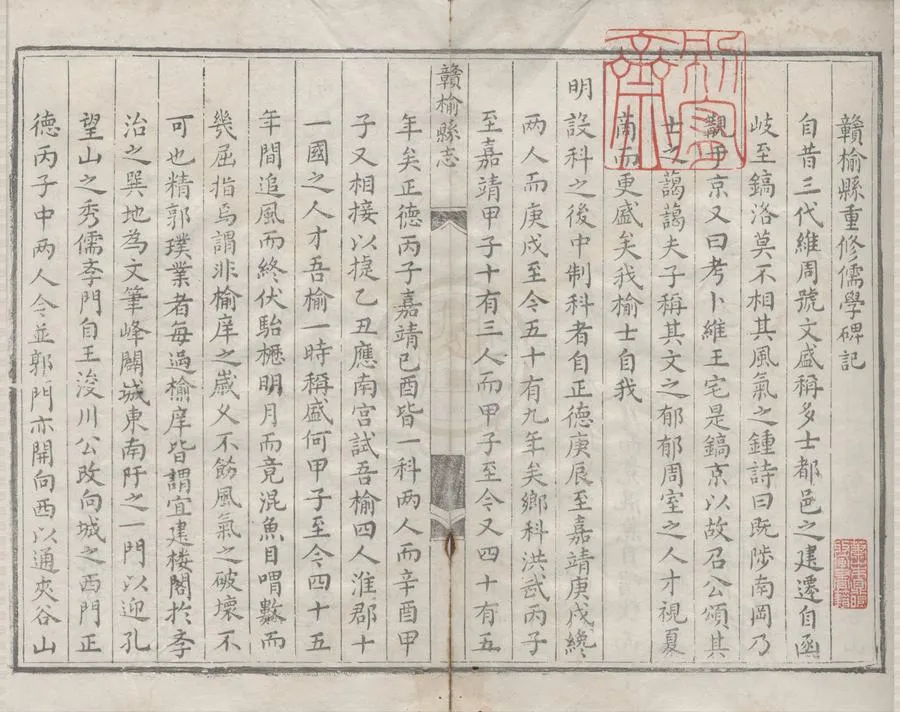 贛榆縣重修儒學碑記
自昔三代維周號文盛稱多士都邑之建遷自函
岐至鎬洛莫不相其風氣之鍾詩曰既陟南岡乃
觀于京又曰考卜維王宅是鎬京以故召公頌其
士之藹藹夫子稱其文之郁郁周室之人才視夏
商而更盛矣我榆士自我
明設科之後中制科者自正德庚辰至嘉靖庚戌終
两人而庚戌至今五十有九年矣鄉科洪武丙子
至嘉靖甲子十有三人而甲子至今又四十有五
贛榆縣志
年矣正德丙子嘉靖已酉皆一科两人而辛酉甲
子又相接以捷乙丑應南宮試吾榆四人淮郡十
一國之人才吾榆一時稱盛何甲子至今四十五
年間追風而終伏駘櫪明月而竟混魚目喟歎而
幾屈指焉謂非榆庠之崴乂不飭風氣之破壞不
可也精郭璞業者每過榆庠皆謂宜建楼閣於李
治之巽地為文筆峰闢城東南圩之一門以迎孔
望山之秀儒李門自王浚川公改向城之西門正
德丙子中两人今並郭門亦開向西以通夾谷山